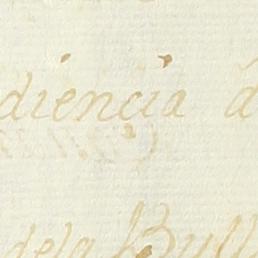 diencia d
dela Bull